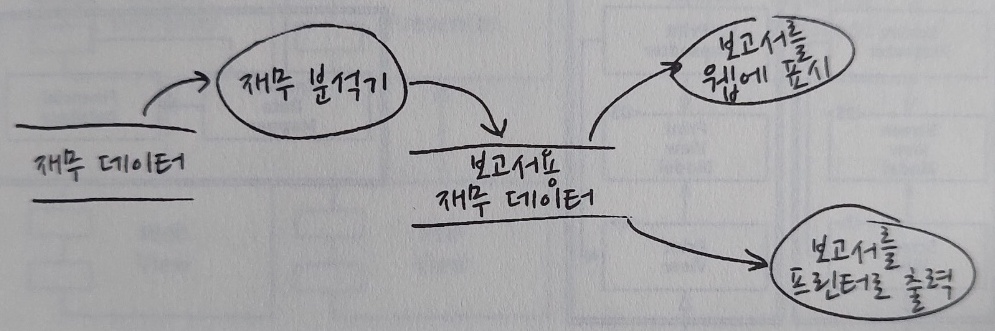 재무 데이터
재무 분석기
보고서용
재무 데이터
보고서를
웹에 표시
보고서를
프린터로 출력